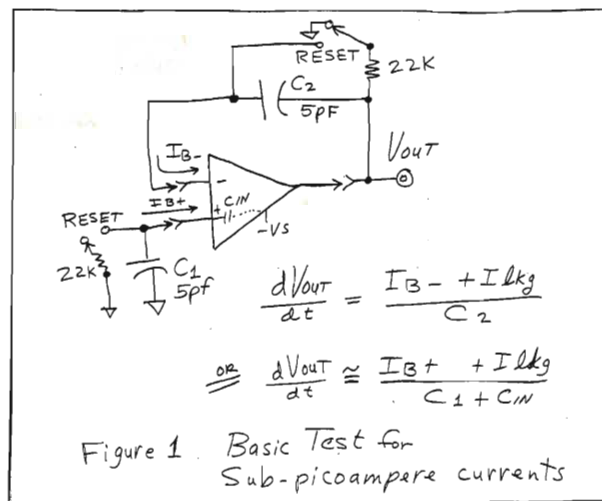 RESET
22K
C2
5PF
VOUT
IB-
-
IB+
RESET
+
CIN
-VS
22K
C1
5pf
dVOUT/dt = IB- + Ilkg/C2
OR dVOUT/dt ≅ IB+ + Ilkg/C1 + CIN
Figure 1. Basic Test for
Sub-picoampere currents